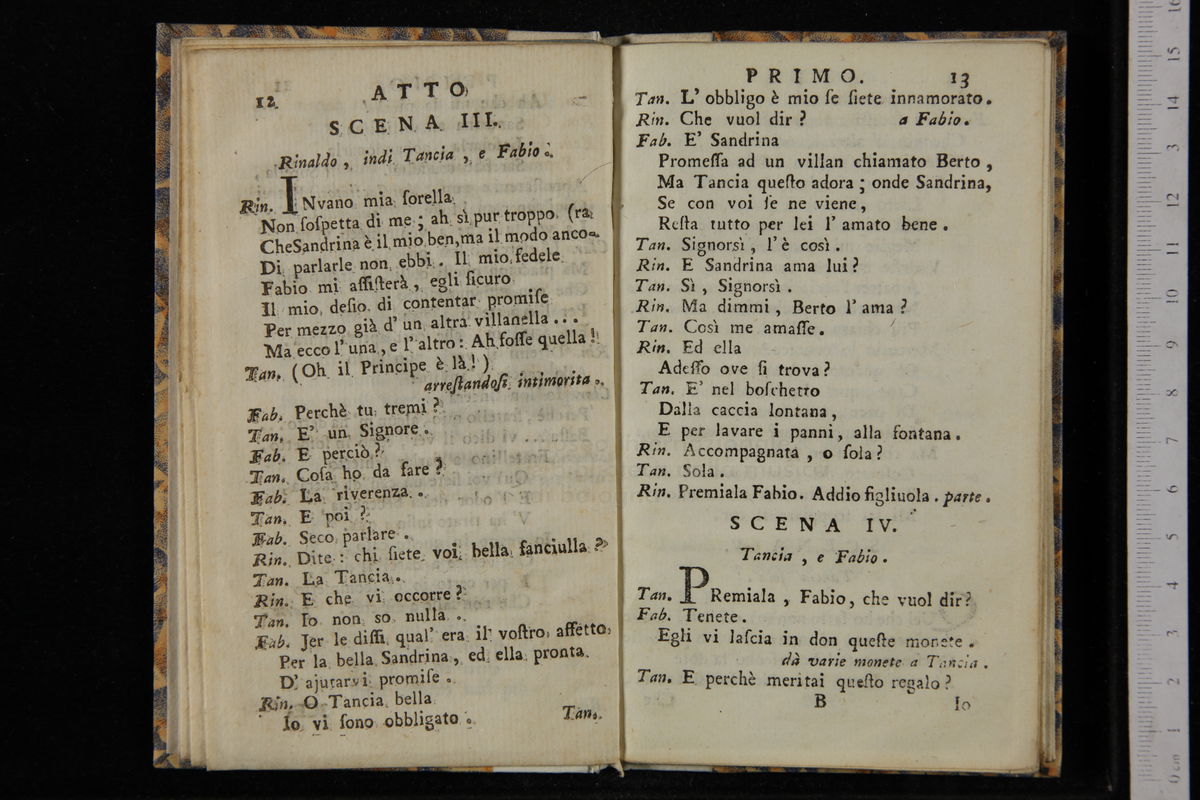 12
ATTO
SCENA III.
Rinaldo, indi Tancia, e Fabio.
Rin. INvano mia ſorella
Non ſoſpetta di me; ah sì pur troppo (ra
Che Sandrina è il mio ben, ma il modo anco-
Di parlarle non ebbi. Il mio fedele
Fabio mi aſſiſterà, egli ſicuro
Il mio deſio di contentar promiſe
Per mezzo già d' un altra villanella...
Ma ecco l' una, e l' altro: Ah foſſe quella!
Tan. (Oh il Principe è là!)
arreſtandoſi intimorita.
Fab. Perchè tu tremi?
Tan. E' un Signore.
Fab. E perciò?
Tan. Coſa ho da fare?
Fab. La riverenza.
Tan. E poi?
Fab. Seco parlare.
Rin. Dite: chi ſiete voi, bella fanciulla?
Tan. La Tancia.
Rin. E che vi occorre?
Tan. Io non so nulla.
Fab. Jer le diſſi qual' era il voſtro affetto
Per la bella Sandrina, ed ella pronta
D' ajutarvi promiſe.
Rin. O Tancia bella
Io vi ſono obbligato.
Tan.
PRIMO.
13
Tan. L' obbligo è mio ſe ſiete innamorato.
Rin. Che vuol dir? a Fabio.
Fab. E' Sandrina
Promeſſa ad un villan chiamato Berto,
Ma Tancia queſto adora; onde Sandrina,
Se con voi ſe ne viene,
Reſta tutto per lei l' amato bene.
Tan. Signorsì, l' è così.
Rin. E Sandrina ama lui?
Tan. Sì, Signorsì.
Rin. Ma dimmi, Berto l' ama?
Tan. Così me amaſſe.
Rin. Ed ella
Adeſſo ove ſi trova?
Tan. E' nel boſchetto
Dalla caccia lontana,
E per lavare i panni, alla fontana.
Rin. Accompagnata, o ſola?
Tan. Sola.
Rin. Premiala Fabio. Addio figliuola. parte.
SCENA IV.
Tancia, e Fabio.
Tan. PRemiala, Fabio, che vuol dir?
Fab. Tenete.
Egli vi laſcia in don queſte monete.
dà varie monete a Tancia.
Tan. E perchè meritai queſto regalo?
B
Io
0 cm 1 2 3 4 5 6 7 8 9 10 11 12 13 14 15 16